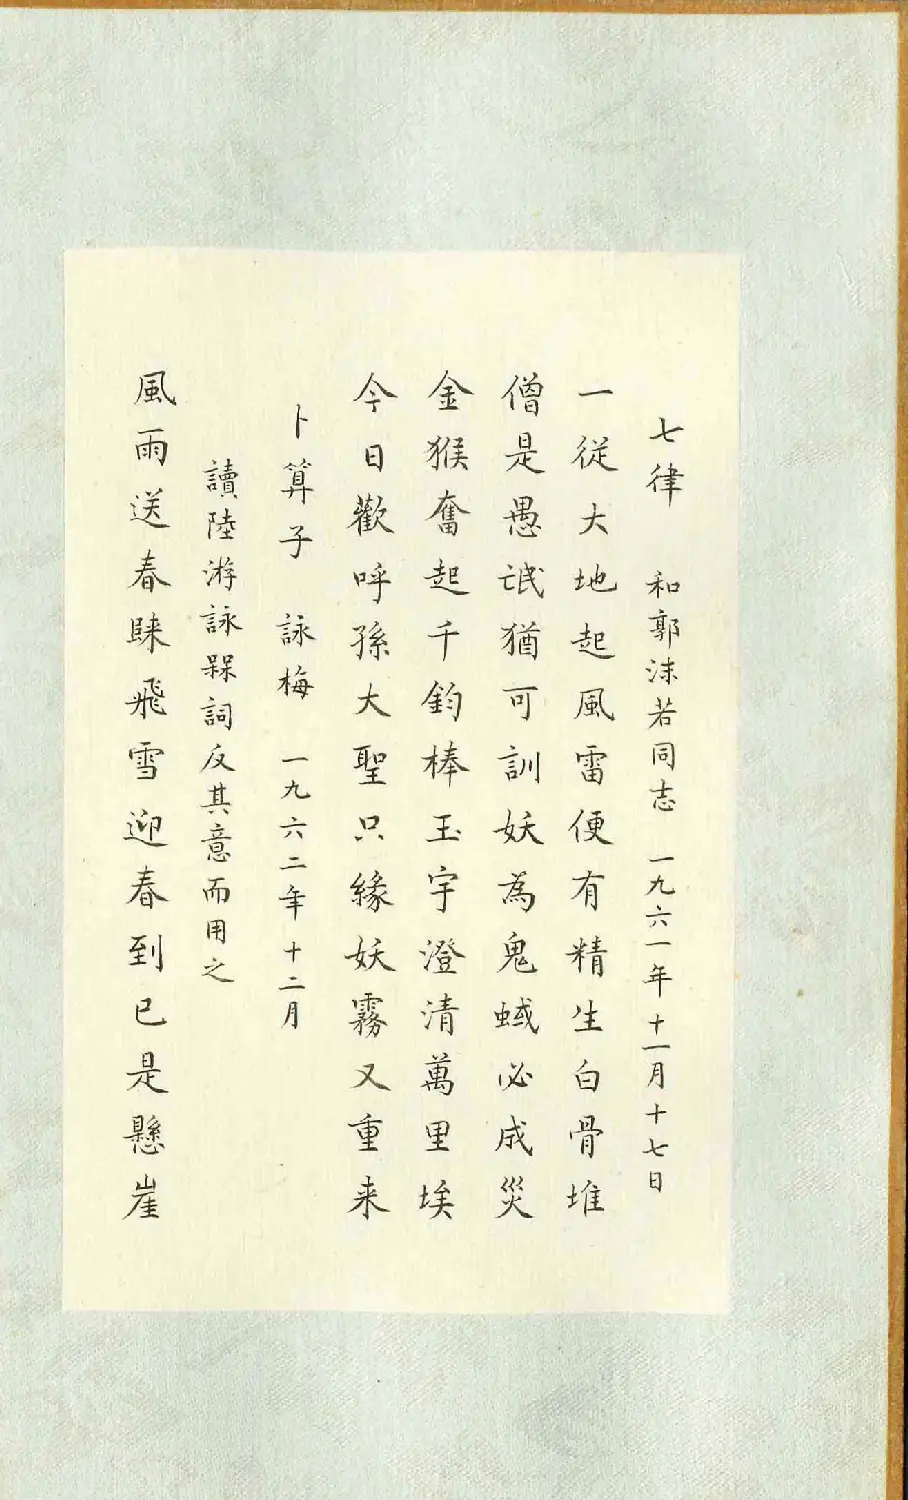 七律 和郭沫若同志 一九六一年十一月十七日
一從大地起風雷便有精生白骨堆
僧是愚氓猶可訓妖為鬼蜮必成災
金猴奮起千鈞棒玉宇澄清萬里埃
今日歡呼孫大聖只緣妖霧又重来
卜算子 詠梅 一九六二年十二月
讀陸游詠槑詞反其意而用之
風雨送春歸飛雪迎春到已是懸崖